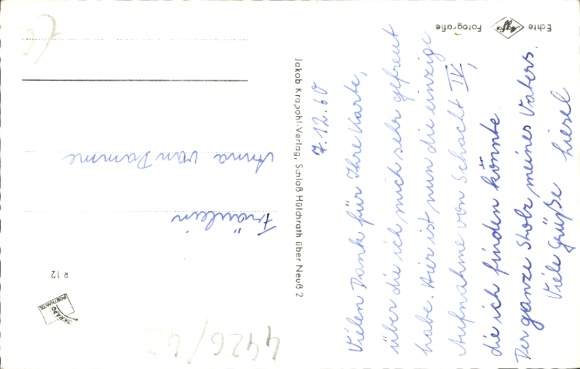 Echte Agfa Fotografie
7.12.60
Vielen Dank für Ihre Karte,
über die ich mich sehr gefreut
habe. Hier ist nun die einzige
Aufnahme von Schacht IV,
die ich finden könnte
Der ganze Stolz meines Vaters.
Viele Grüße Liesel
Jakob Krapohl-Verlag, Schloß Hülchrath über Neuß 2
Fräulein
Anna van Damme
R 12